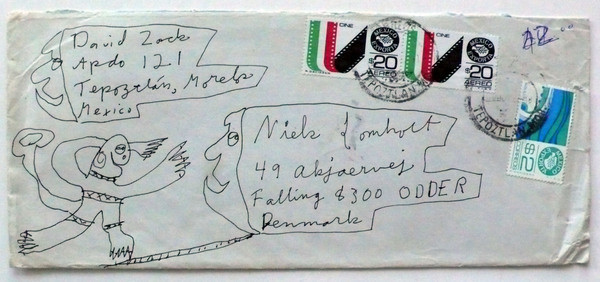 David Zack
Apdo 121
Tepoztlán, Morelos
Mexico
CINE
MEXICO
EXPORTA
$20
AEREO
CINE
MEXICO
EXPORTA
$20
AEREO
TEPOZTLAN, MOR
TEPOZTLAN, MOR
Niels Lomholt
49 Akjaervej
Falling 8300 ODDER
Denmark